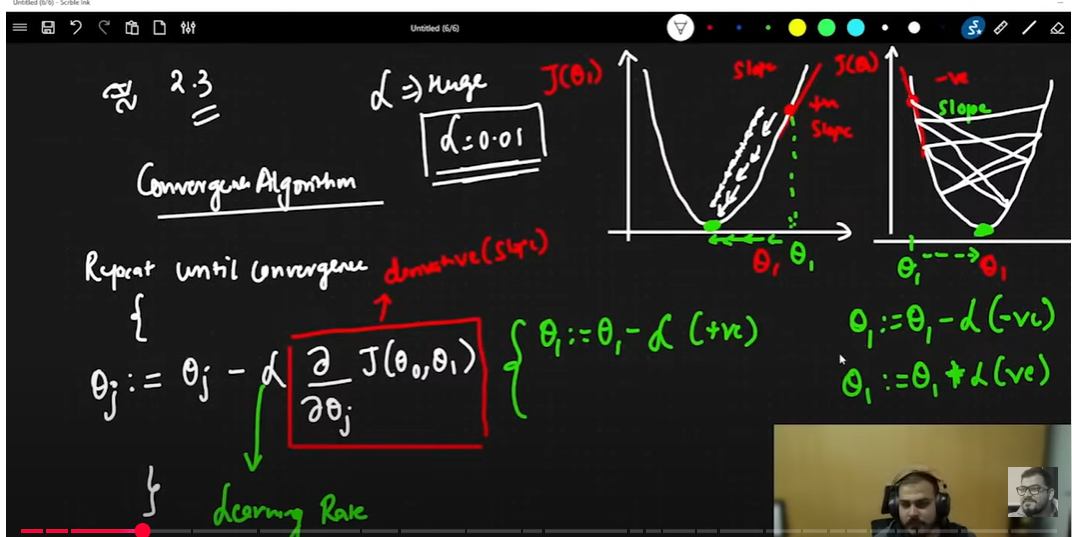 Untitled (6/6) - Scrble Ink
Untitled (6/6)
≈ 2.3
α ⇒ Huge
α = 0.01
Convergence Algorithm
Repeat until convergence
{
derivative (slope)
θj := θj - α ∂/∂θj J(θ0, θ1)
}
Learning Rate
{ θ1 := θ1 - α (+ve)
J(θ1)
slope
+ve
slope
θ1 θ1
J(θ)
-ve
slope
θ1 θ1
θ1 := θ1 - α (-ve)
θ1 := θ1 + α (ve)